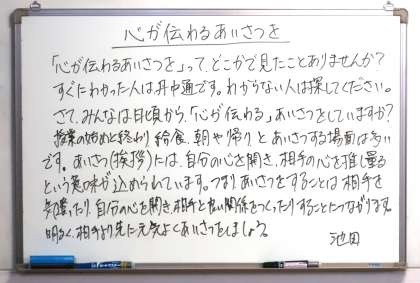 心が伝わるあいさつを
「心が伝わるあいさつを」って、どこかで見たことありませんか?
すぐにわかった人は丹中通です。わからない人は探してください。
さて、みんなは日頃から、「心が伝わる」あいさつをしていますか?
授業の始めと終わり、給食、朝や帰りとあいさつする場面は多い
です。あいさつ(挨拶)には、自分の心を開き、相手の心を推し量る
という意味が込められています。つまり、あいさつをすることは相手を
気遣ったり、自分の心を開き、相手と良い関係をつくったりすることにつながります。
明るく、相手より先に元気よくあいさつをしましょう。
池田